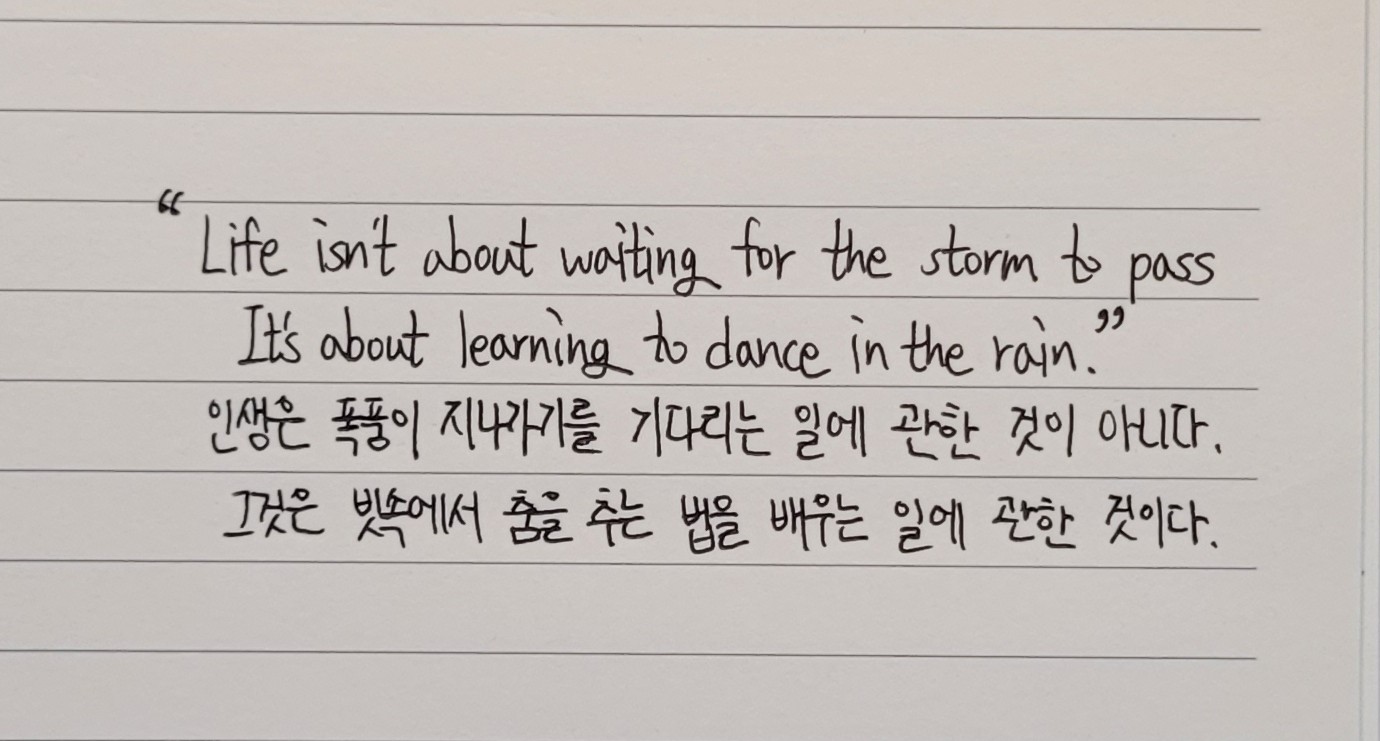 “Life isn't about waiting for the storm to pass
It's about learning to dance in the rain.”
인생은 폭풍이 지나가기를 기다리는 일에 관한 것이 아니다.
그것은 빗속에서 춤을 추는 법을 배우는 일에 관한 것이다.